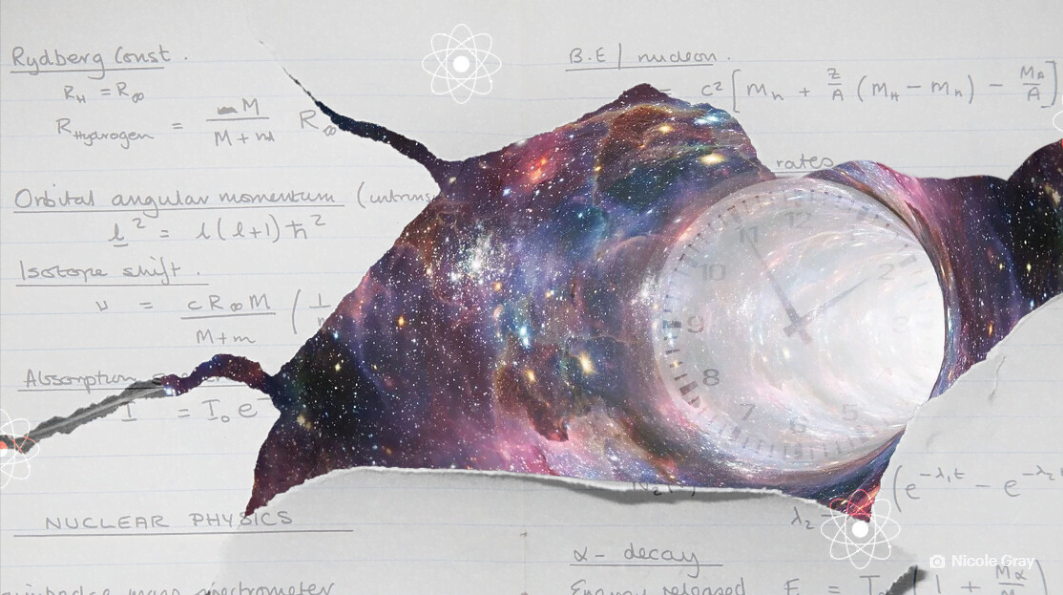 Rydberg Const.
R_H = R_∞
R_Hydrogen = M / M + m R_∞
Orbital angular momentum (intrins
l² = l(l+1)ħ²
Isotope shift.
ν = cR_∞M / M+m (1
Absorption
I = I₀e⁻
NUCLEAR PHYSICS
mass spectrometer
B.E / nucleon.
= c² [m_n + Z/A (M_H − m_n) − M_A/A]
rates
12
11
10
2
9
8
7
6
5
N₂(
λ₂ −
(e^-λ₁t − e^-λ₂
α - decay
Energy released E = T (1 + Mα
Nicole Gray